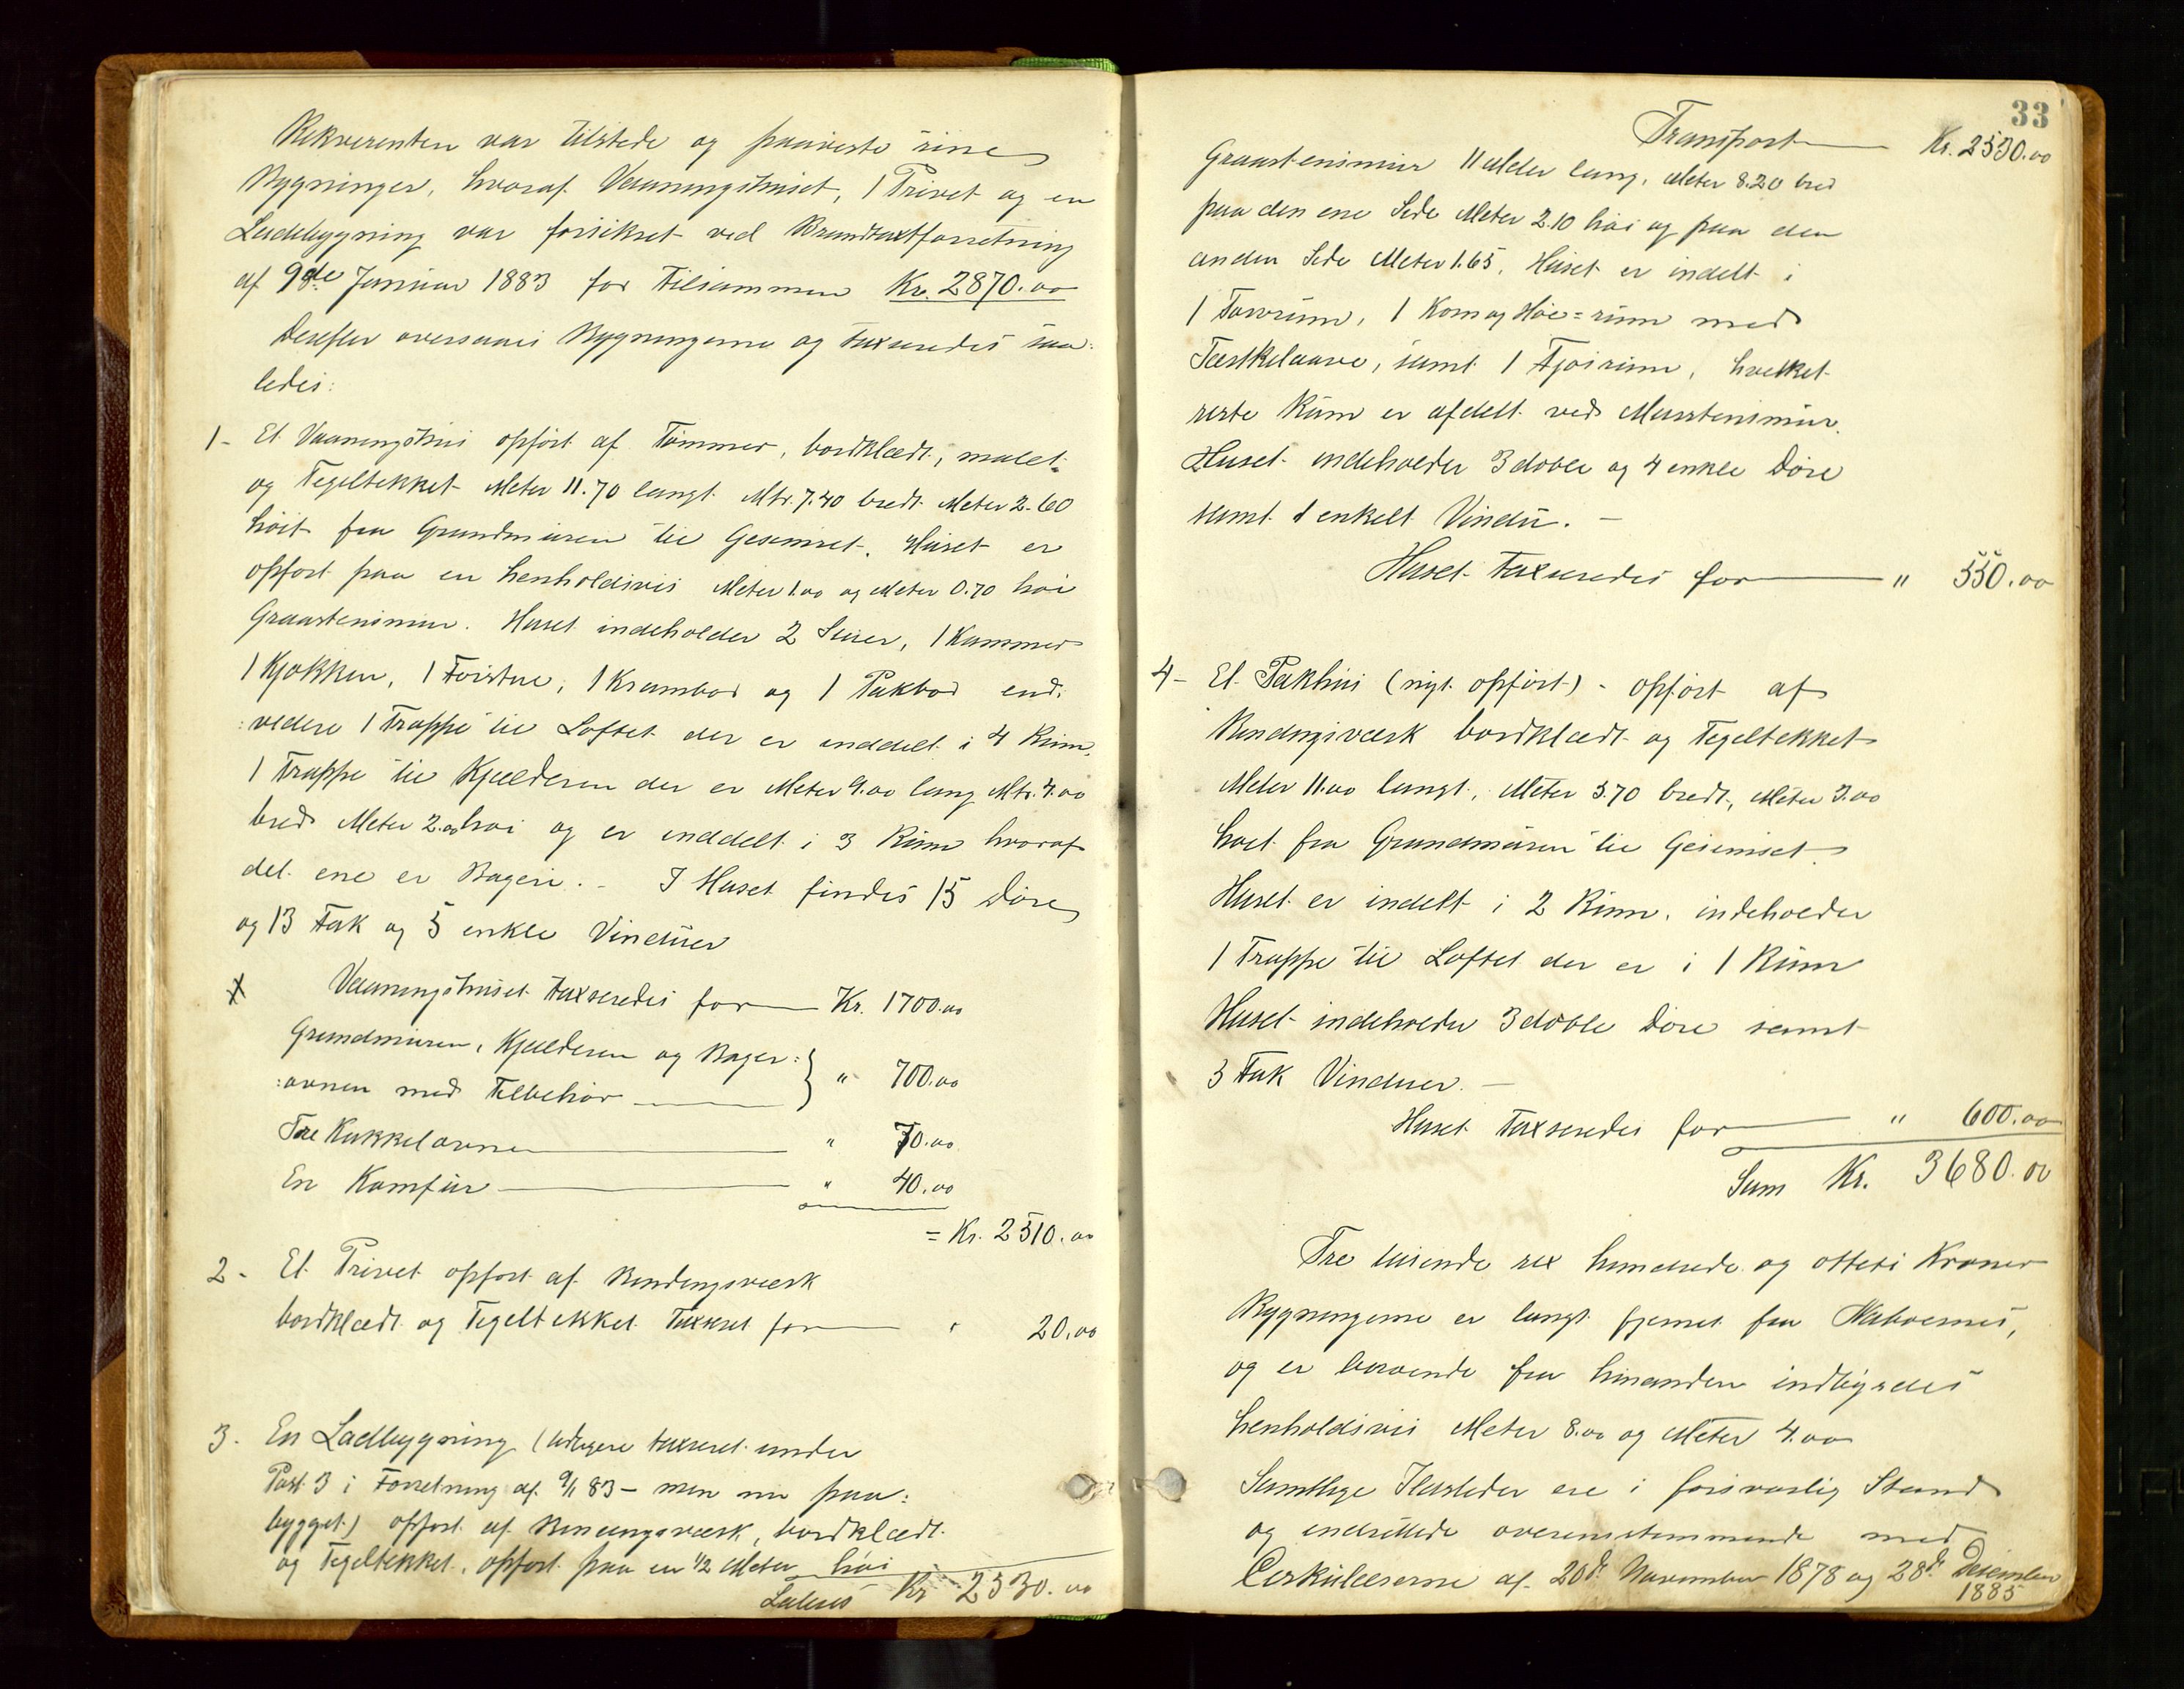 Rekverenten var tilstede og paaviste sine
Bygninger, hvoraf Vaaningshuset, 1 Privet og en
Ladebygning var forsikret ved Brandtaxtforretning
af 9de Januar 1883 for tilsammen Kr. 2870.00
Derefter oversaaes Bygningerne og taxeredes saa-
ledes:
1- Et Vaaningshus opført af Tømmer, bordklædt, malet
og Tegeltekket Meter 11.70 langt Mtr. 7.40 bredt Meter 2.60
høit fra Grundmuren til Gesimset. Huset er
opført paa en henholdsvis Meter 1.00 og Meter 0.70 høi
Graastensmur. Huset indeholder 2 Stuer, 1 Kammer
1 Kjøkken, 1 Forstue, 1 Krambod og 1 Pakbod end-
:videre 1 Trappe til Loftet der er inddelt i 4 Rum,
1 Trappe til Kjælderen der er Meter 9.00 lang Mtr. 7.00
bred Meter 2.00 høi og er inddelt i 3 Rum hvoraf
det ene er Bageri. - I Huset findes 15 Døre
og 13 Fak og 5 enkle Vinduer
Vaaningshuset taxeredes for Kr. 1700.00
Grundmuren, Kjælderen og Bager:
:ovnen med Tilbehør } " 700.00
Tre Kakkelovne " 70.00
En Komfur " 40.00
= Kr. 2510.00
2- Et Privet opført af Bindingsværk
bordklædt og Tegeltekket taxeret for " 20.00
3. En Ladbygning (tidligere taxeret under
Post 3 i Forretning af 9/1 83 - men nu paa:
bygget) opført af Bindingsværk, bordklædt
og Tegeltekket, opført paa en 1/2 Meter høi
Lateris Kr 2530.00
33
Transport Kr. 2530.00
Graastensmur 11 Meter lang, Meter 8.20 bred
paa den ene Side Meter 2.10 høi og paa den
anden Side Meter 1.65. Huset er indelt i
1 Torvrum, 1 Korn og Høe=rum med
Tærskelaave, samt 1 Fjøsrum, hvilket
sidste Rum er afdelt ved Murstensmur.
Huset indeholder 3 doble og 4 enkle Døre
samt 1 enkelt Vindu. -
Huset taxeredes for " 550.00
4- Et Pakhus (nyt opført) - opført af
Bindingsværk bordklædt og Tegeltekket
Meter 11.00 langt, Meter 5.70 bredt, Meter 3.00
høit fra Grundmuren til Gesimset.
Huset er indelt i 2 Rum, indeholder
1 Trappe til Loftet der er i 1 Rum
Huset indeholder 3 doble Døre samt
3 Fak Vinduer. -
Huset taxeredes for " 600.00
Sum Kr. 3680.00
Tre tusende sex hundrede og otteti Kroner
Bygningerne er langt fjernet fra Naboernes,
og er beroende fra hinanden indbyrdes
henholdsvis Meter 8.00 og Meter 4.00
Samtlige Ildsteder ere i forsvarlig Stand
og indrettede overensstemmende med
Cirkulærerne af 20de November 1878 og 28de Desember
1885